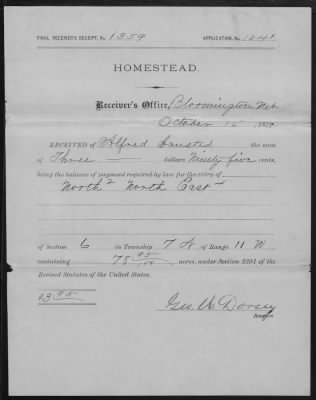 FINAL RECEIVER'S RECEIPT, No. 1359 APPLICATION, No. 1041
HOMESTEAD.
Receiver's Office, Bloomington Neb
October 15, 187
RECEIVED OF Alfred the sum
of Three — dollars Ninety five cents,
being the balance of payment required by law for the entry of
North 2 North East 4
of Section 6 in Township 7 N of Range 11 W
containing 78 95/100 acres, under Section 2291 of the
Revised Statutes of the United States.
$3 95
Geo. W. Dorsey
Receiver